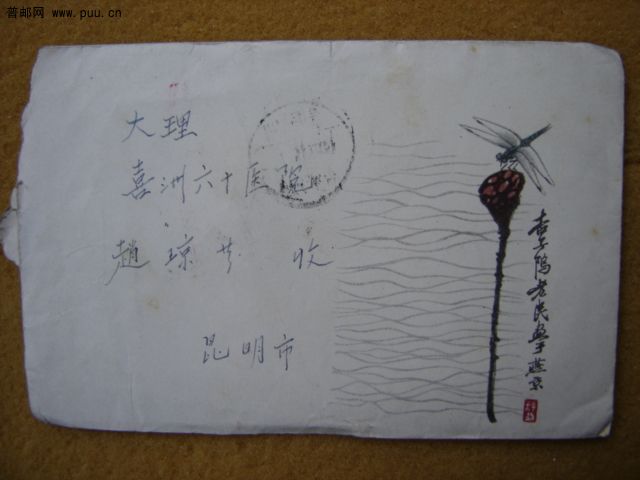 普邮网 www.puu.cn
大理
喜洲六十医院
趙琼芬 收
昆明市
杏子隖老民畢燕京